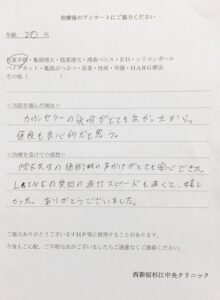 治療後のアンケートにご協力ください
年齢 20 代
包茎手術・亀頭増大・陰茎増大・湾曲ペニス・ED・シリコンボール
パイプカット・亀頭ぶつぶつ・長茎・性病・早漏・HARG療法
その他(　　　)
<当院を選んだ理由>
カウンセラーの説明がとても良かったから。
値段も良心的だと思う。
<治療を受けての感想>
院長先生の施術のおかげがとても安心できた。
LINEの質問の返信スピードも速くて、嬉し
かった。ありがとうございました。
ご協力ありがとうございますHP等に使用することがあります。
今後もご心配、ご不明な点がございましたらご遠慮なくご連絡ください。
西新宿杉江中央クリニック